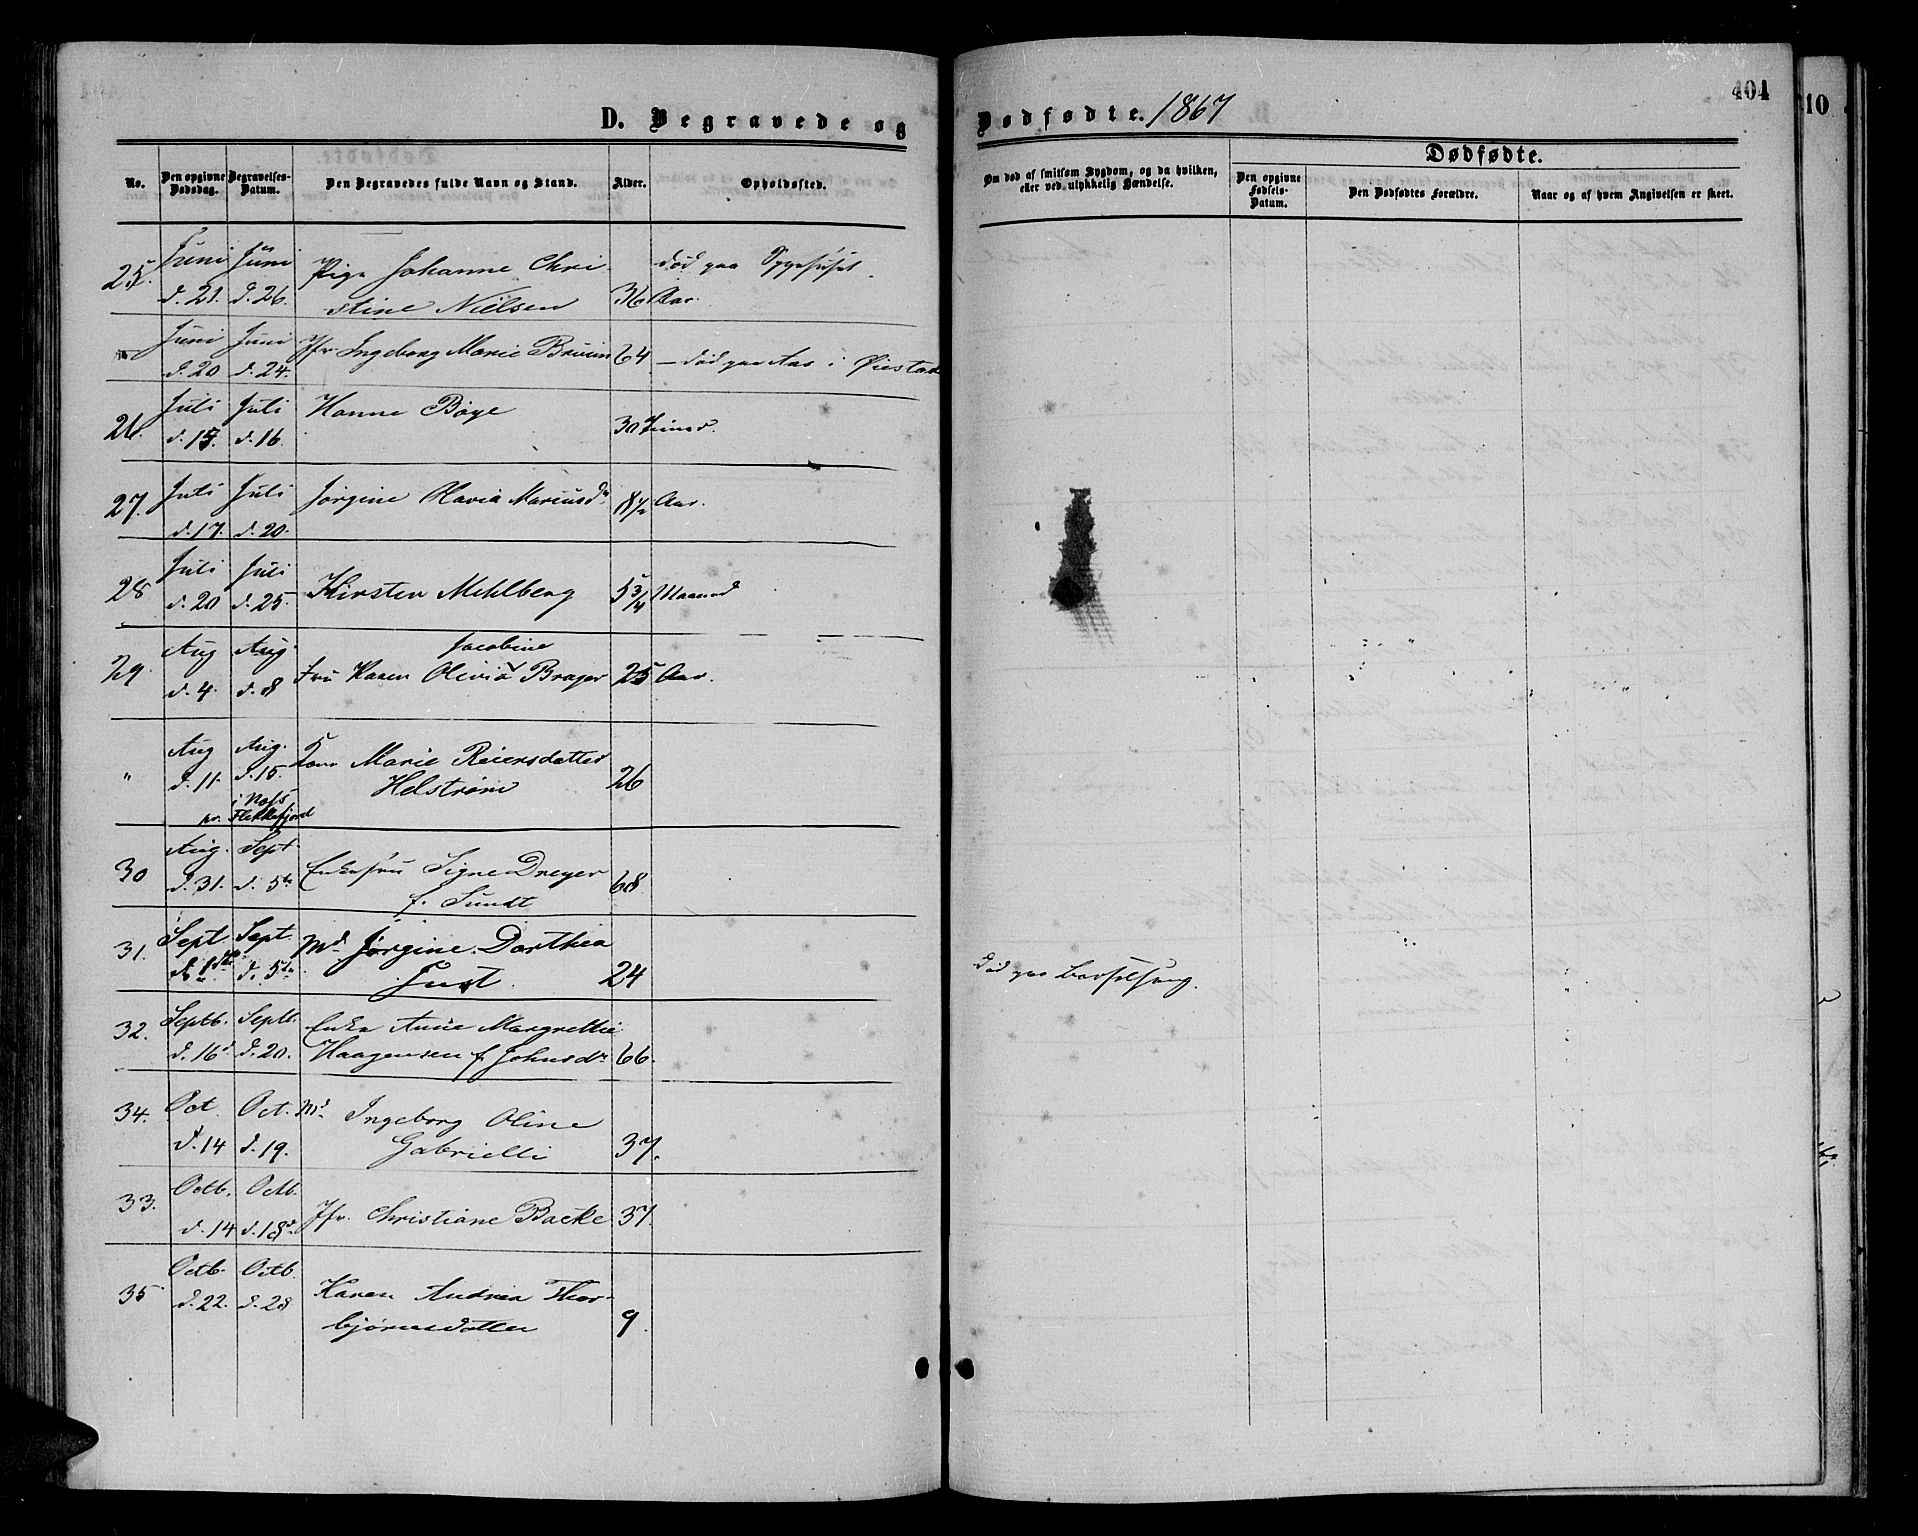 404
10
D. Begravede og Dødfødte. 1867
No.
Den opgivne Dødsdag.
Begravelses-Datum.
Den Begravedes fulde Navn og Stand.
Alder.
Opholdssted.
Om død af smitsom Sygdom, og da hvilken, eller ved ulykkelig Hændelse.
Dødfødte.
Den opgivne Fødsels-Datum.
Den Dødfødtes Forældre.
Naar og af hvem Angivelsen er skeet.
25. Juni Juni Pige Johanne Chri- død paa Sygehuset.
d. 21. d. 26. stine Nielsen 36 Aar.
Juni Juni Jfr. Ingeborg Marie Bruun 64 - død paa Aas i Øiestad
d. 20 d. 24.
26. Juli Juli Hanne Boye 30 Timer.
d. 15. d. 16.
27. Juli Juli Jørgine Olavia Mariusdr 8½ Aar.
d. 17. d. 20.
28 Juli Juli Kirsten Mehlberg 5 3/4 Maaned
d. 20 d. 25.
Jacobine
29. Aug Aug. Fru Karen Olivia Brager 25 Aar.
d. 4. d. 8
" Aug Aug. Kone Marie Reiersdatter
d. 11. d. 15. Helstrøm 26
i Næss
pr. Flekkefjord
30 Aug. Sept. Enkefru Signe Dreyer
d. 31. d. 5te f. Sundt 68.
31. Sept Sept. Md. Jørgine Dorthea
d. 1ste d. 5te Just. 24 Død paa Barselseng.
32. Septb. Septb. Enke Anne Margrethe
d. 16d d. 20. Haagensen f. Johnsdr 66.
34. Oct. Oct. Md. Ingeborg Oline
d. 14 d. 19. Gabrielli 37.
33. Octb. Octb. Jfr. Christiane Backe 37.
d. 14 d. 18d
35 Octb. Octb. Karen Andrea Thor-
d. 22. d. 28 bjørnsdatter 9.